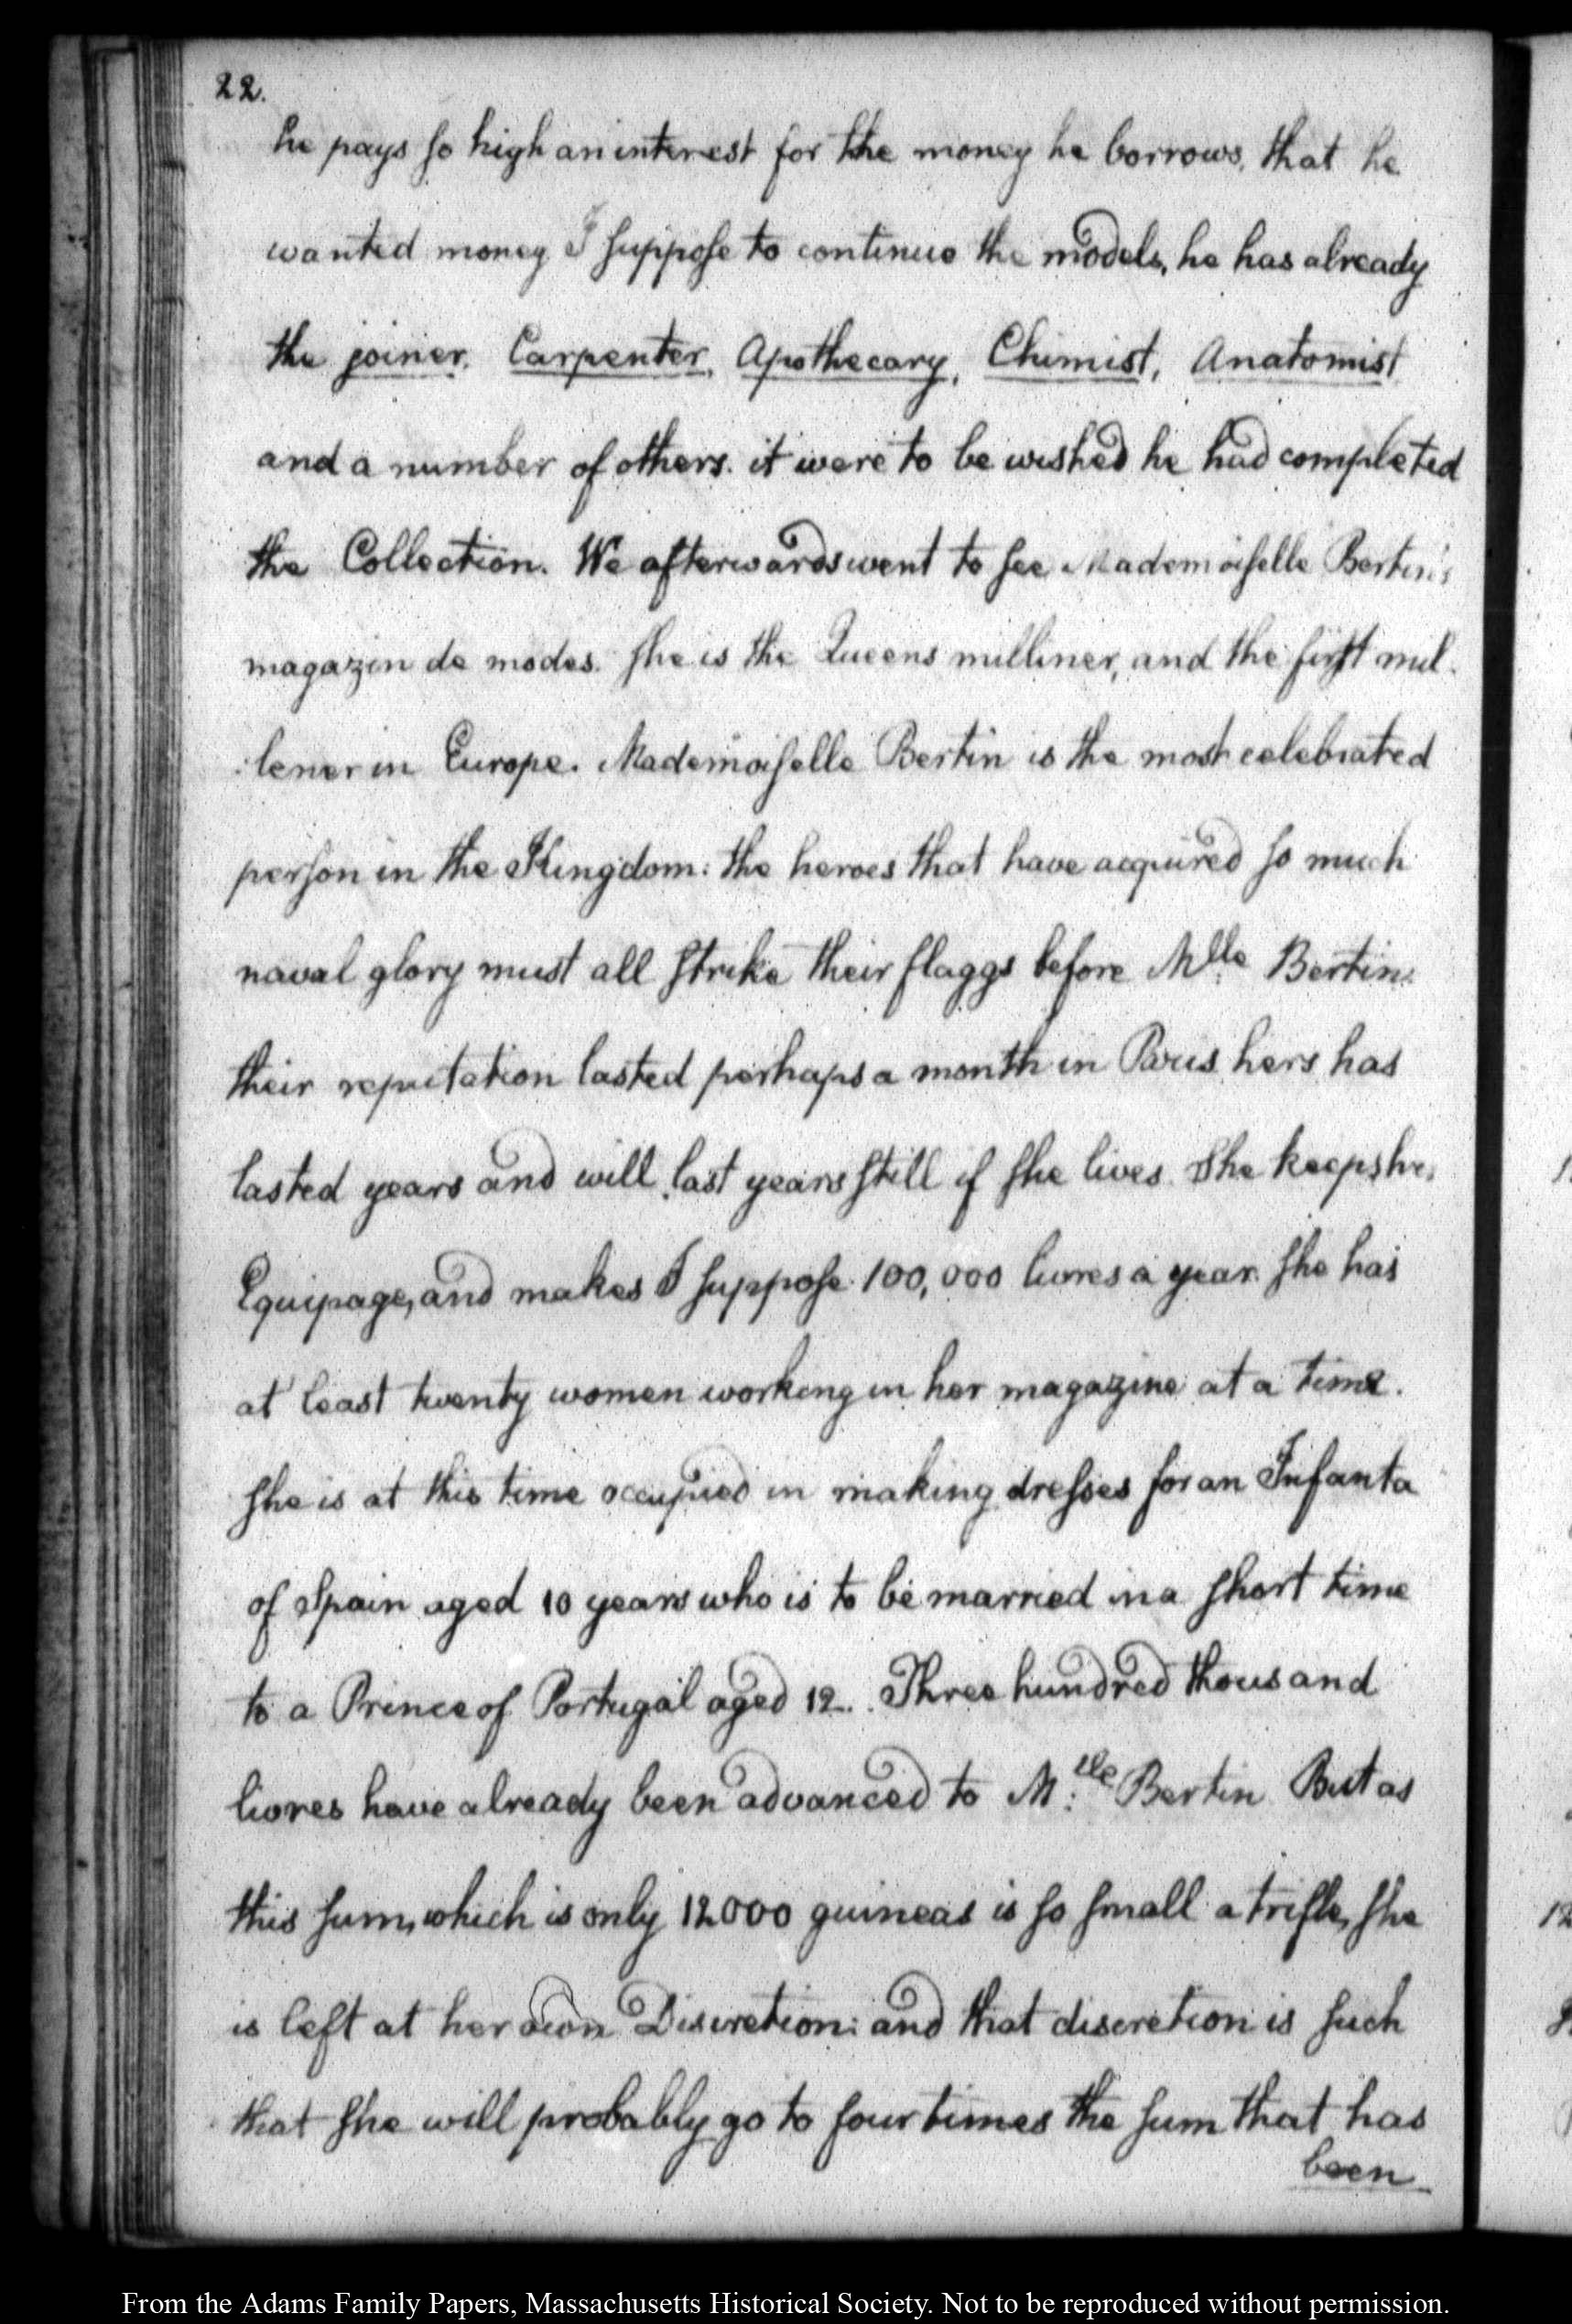 22.
he pays so high an interest for the money he borrows, that he
wanted money I suppose to continue the models, he has already
the joiner, Carpenter, Apothecary, Chimist, Anatomist
and a number of others. it were to be wished he had completed
the Collection. We afterwards went to see Mademoiselle Bertin's
magazin de modes. she is the Queens milliner, and the first mil-
:lener in Europe. Mademoiselle Bertin is the most celebrated
person in the Kingdom: the heroes that have acquired so much
naval glory must all strike their flaggs before Mlle Bertin:
their reputation lasted perhaps a month in Paris, hers has
lasted years and will last years still if she lives. She keeps her
Equipage, and makes I suppose 100,000 livres a year. she has
at least twenty women working in her magazine at a time.
she is at this time occupied in making dresses for an Infanta
of Spain aged 10 years who is to be married in a short time
to a Prince of Portugal aged 12. Three hundred thousand
livres have already been advanced to M:lle Bertin But as
this sum, which is only 12000 guineas is so small a trifle, she
is left at her own Discretion: and that discretion is such
that she will probably go to four times the sum that has
been
From the Adams Family Papers, Massachusetts Historical Society. Not to be reproduced without permission.